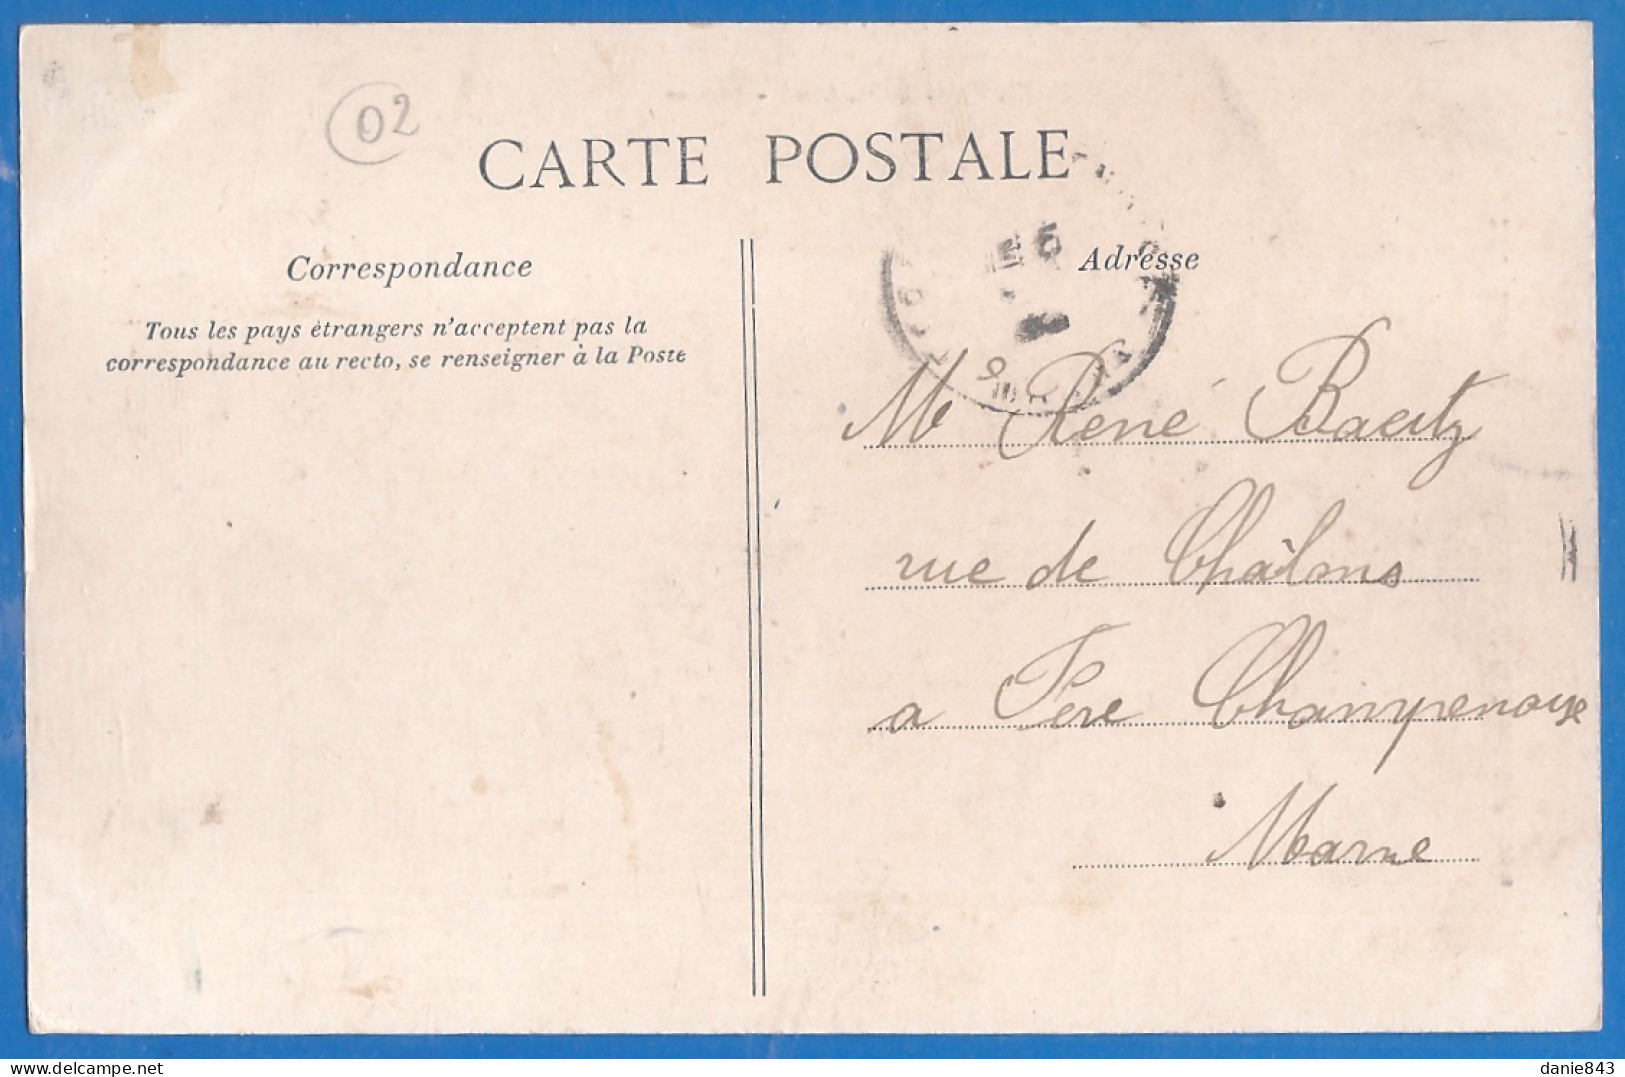 02
CARTE POSTALE
Correspondance
Adresse
Tous les pays étrangers n'acceptent pas la
correspondance au recto, se renseigner à la Poste
M René
rue de Châlons
a Fère Champenoise
Marne
danie843